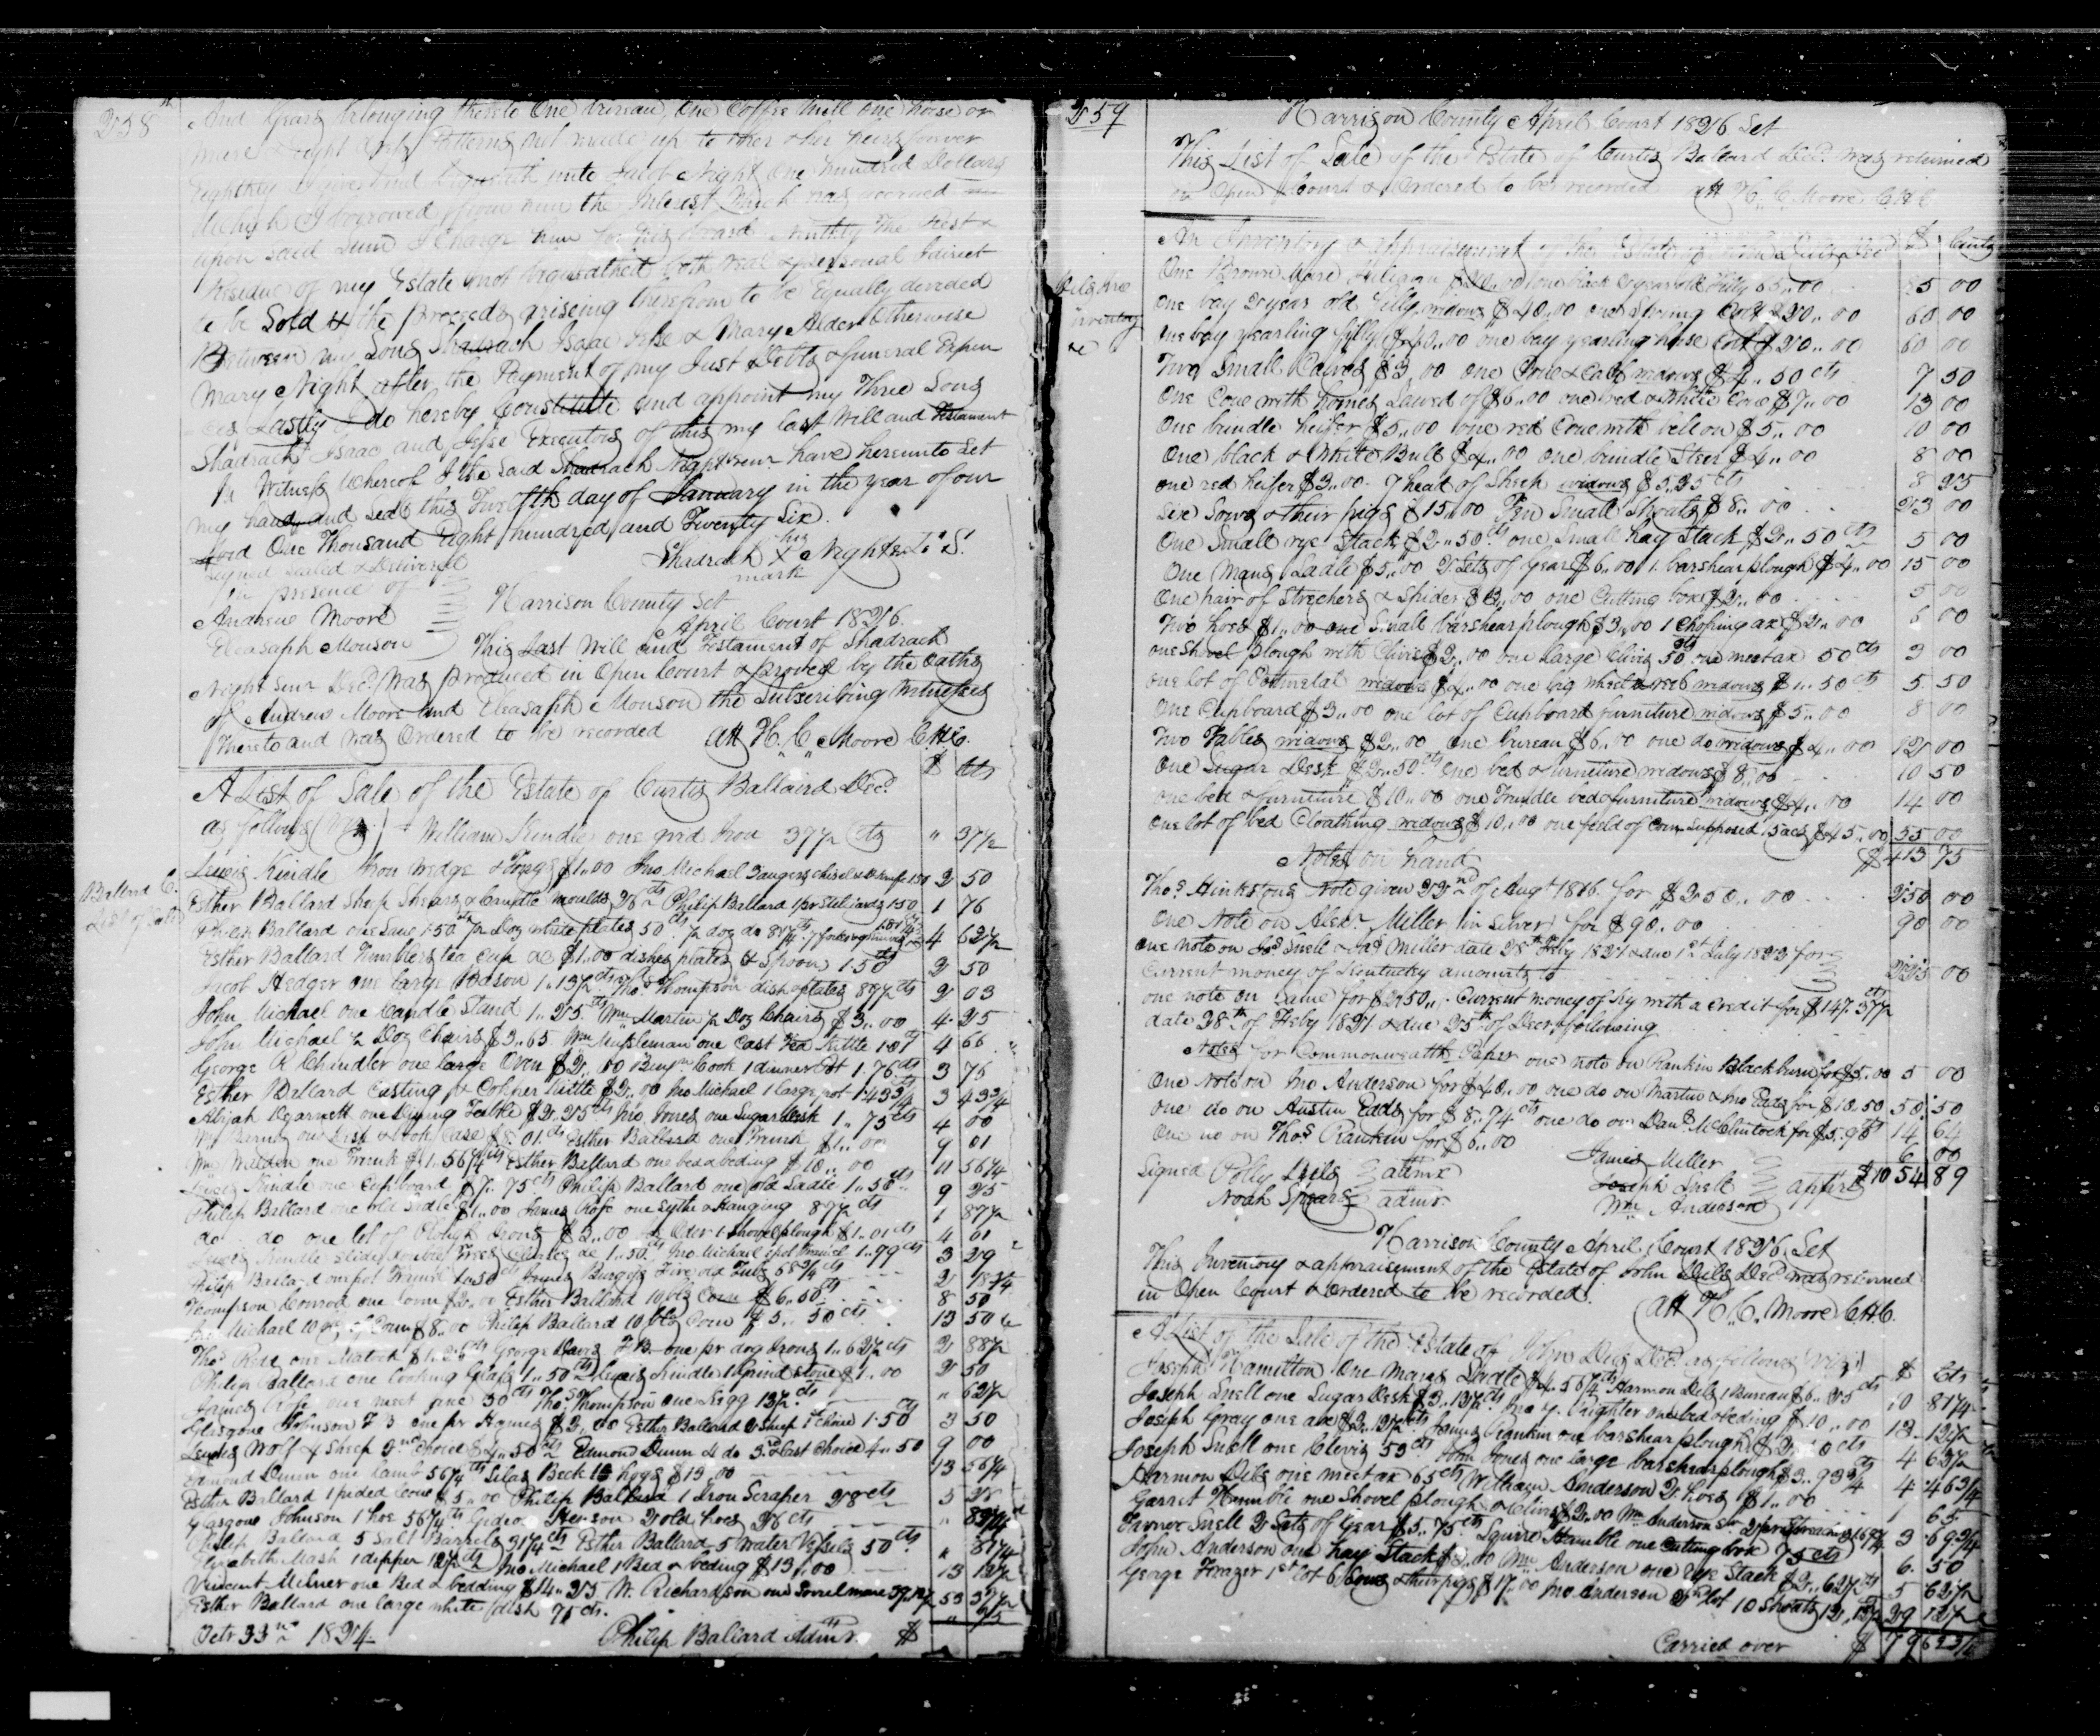 258
And Gears belonging thereto One bureau, One Coffee Mill one horse or
mare & eight Patterns not made up to her & her heirs forever
Eighthly I give and bequeath unto Jacob Night One hundred Dollars
Which I borrowed from him the Interest Which has accrued
upon said Sum I Charge him for his board Ninthly The Rest &
residue of my Estate not bequeathed both real & personal I direct
to be Sold & the proceeds arising therefrom to be Equally devided
Between my Sons Shadrach Isaac Jesse & Mary Alder Otherwise
Mary Night after the Payment of my Just Debts & funeral Expen
ces Lastly I do hereby Constitute and appoint my Three Sons
Shadrach Isaac and Jesse Executors of this my last Will and Testament
In Witness Whereof I the Said Shadrach Night senr have hereunto Set
my hand and Seal this day of January in the year of our
Lord One Thousand Eight hundred and Twenty Six.
Signed Sealed & Delivered
in presence of
Shadrach his X mark Night sr L. S.
Andrew Moore
Eleasaph Monson
Harrison County Set
April Court 1826.
This Last Will and Testament of Shadrach
Night Senr Decd. Was produced in Open Court & proved by the Oaths
of Andrew Moore and Eleasaph Monson the Subscribing Witnesses
thereto and Was Ordered to be recorded att H. C. Moore C H C.
$ Cts
A List of Sale of the Estate of Curtis Ballaird Decd
as follows (Viz) William Kindle one grid Iron 37½ Cts " 37½
Ballard C.
List of Sale
Lewis Kindle Iron Wedge & Tongs $1.00 Jno Michael 2 50
Esther Ballard Sheep Shears & Candle moulds 26 cts Philip Ballard 1 pr Stilliards 1.50 1 76
Philip Ballard one 1.50 ½ Doz white plates 50 cts ½ doz do 4 62½
Esther Ballard Tumblers tea Cup &c $1.00 dishes plates & Spoons 1.50 2 50
Jacob Hedger one large Bason 1.13½ cts Thos Thompson dish & plates 89½ cts 2 03
John Michael one Candle Stand 1.25 cts Wm Martin ½ Doz Chairs $3.00 4.25
John Michael ½ Doz Chairs $3.65 Wm Musleman one Cast Tea Kittle 1.01 4 66
George R Chindler one large Oven $2.00 Benjn Cook 1 dinner Pot 1.76 cts 3 76
Esther Ballard Casting & Copper Kittle $2.00 Jno Michael 1 large pot 1.43¾ 3 43¾
Abijah Garnett one Dining Table $2.25 cts Jno Jones one Sugar Desk 1.75 cts 4 00
Wm Barns one Desk & Book Case $8.01 cts Esther Ballard one Trunk $1.00 9 01
Wm one Trunk $1.56¼ cts Esther Ballard one bed & beding $10.00 11 56¼
Lewis Kindle one Cupboard $7.75 cts Philip Ballard one old Sadle 1.50 cts 9 25
Philip Ballard one old Sadle $1.00 James one Sythe & Hanging 87½ cts 1 87½
do do one lot of Plough Irons $3.00 1 Shovel plough $1.01 cts 4 01
Lewis Kindle double Trees &c 1.50 cts Jno Michael 1 pot 1.79 cts 3 29
Philip Ballard one pot Tramel 1.50 cts James Burgess Five old Tubs 68¾ cts 2 18¾
Thompson Conrod one loom $2.00 Esther Ballard 10 bls Corn $6.50 cts 8 50
Jno Michael 10 bls of Corn $8.00 Philip Ballard 10 bls Corn $5.50 cts 13 50
Thos one Matock $1.26 cts George Davis F.B. one pr dog Irons 1.62½ cts 2 88½
Philip Ballard one looking Glass 1.50 cts Lewis Kindle 1 Grind Stone $1.00 2 50
James one meat 50 cts Thos Thompson one Kegg 12½ cts " 62½
Glasgone Johnson F B one pr Hames $2.00 Esther Ballard 2 Sheep 1st choice 1.50 3 50
Lewis Wolf 4 Sheep 2nd choice $4.50 cts Edmond Dunn 4 do 3rd & last Choice 4.50 9 00
Edmond Dunn one lamb 56¼ cts Silas Beck 13 hogs $13.00 13 56¼
Esther Ballard 1 pided Cow $5.00 Philip Ballard 1 Iron Scraper 28 cts 5 28
Glasgone Johnson 1 hoe 56¼ cts Gideon 2 old hoes 26 cts " 82¼
Philip Ballard 5 Salt Barrels 31¼ cts Esther Ballard 5 Water Vessels 50 cts " 81¼
Elizabeth Mash 1 dipper 12½ cts Jno Michael 1 Bed & beding $13.00 13 12½
Vincent Milner one Bed & bedding $14.25 W. Richardson one Sorrel mare 39.12½ 53 37½
Esther Ballard one large white dish 75 cts. " 75
Octr 23nd 1824 Philip Ballard Admr. $
259
Harrison County April Court 1826 Set
This List of Sale of the Estate of Curtis Ballard Decd. Was returned
in Open Court & Ordered to be recorded att H. C. Moore C H C.
An Inventory & appraisement of the Estate of John Dils Decd $ Cents
Dils Jno
inventory
&c
One Brown Mare one black 2 year old Filly 65.00 85 00
One bay 2 year old Filly widows $40.00 one Spring Colt $20.00 60 00
One bay yearling filly $40.00 one bay yearling horse Colt $20.00 60 00
Two Small Calves $3.00 one Cow & Calf widows $4.50 cts 7 50
One Cow with hornes Sawed off $6.00 one red & White Cow $7.00 13 00
One brindle heifer $5.00 one red Cow with bell on $5.00 10 00
One black & White Bull $4.00 one brindle Steer $4.00 8 00
One red heifer $3.00 7 head of Sheep widows $5.25 cts 8 25
Six Sows & their pigs $15.00 Ten Small Shoats $8.00 23 00
One Small rye Stack $2.50 cts one Small hay Stack $2.50 cts 5 00
One Mans Sadle $5.00 2 Sets of Gear $6.00 1 barshear plough $4.00 15 00
One pair of Strechers & Spider $3.00 one Cutting box $2.00 5 00
Two hoes $1.00 one Small barshear plough $3.00 1 Choping ax $2.00 6 00
one Shovel plough with Clivis $2.00 one large Clivis 50 cts one meat ax 50 cts 3 00
one lot of widows $4.00 one big wheel & reel widows $1.50 cts 5.50
One Cupboard $3.00 one lot of Cupboard furniture widows $5.00 8 00
Two Tables widows $2.00 One bureau $6.00 one do widows $4.00 12 00
One Sugar Desk $2.50 cts one bed & furniture widows $8.00 10 50
one bed & furniture $10.00 one Trundle bed & furniture widows $4.00 14 00
One lot of bed Cloathing widows $10.00 one field of Corn Supposed 15 acs $45.00 55 00
Notes on hand $413 75
Thos Hinksons Note given 22nd of Augt 1816 for $250.00 250 00
One Note on Alexr Miller (in Silver) for $90.00 90 00
One note on Snell & Jas Miller date 28th Feby 1821 & due 1st July 1823 for
Current money of Kentucky amounts to 225 00
one note on Same for $250. Current money of Ky with a Credit for $147.37½ cts
date 28th of Feby 1821 & due 25th of Decr following
Notes for Commonwealths Paper one note on Rankin Blackburn for $5.00 5 00
One Note on Jno Anderson for $40.00 one do on Martin & Jno Eads for $18.50 58.50
One do on Austin Eads for $8.74 cts one do on Danl McClintock for $5.90 14 64
One do on Thos Rankin for $6.00 6 00
$1054 89
Signed Polly Dils admx
Noah Spears admr.
James Miller
Joseph Snell
Wm Anderson
apprs
Harrison County April Court 1826 Set
This Inventory & appraisement of the Estate of John Dils Decd was returned
in Open Court & Ordered to be recorded.
att H. C. Moore C H C.
A List of the Sale of the Estate of John Dils Decd as follows (viz) $ Cts
Joseph Hamilton One Mans Sadle $4.56¼ cts Harmon Dils 1 Bureau $6.25 cts 10 81¼
Joseph Snell one Sugar Desk $3.12½ cts Jno Y. Wrighter one bed & beding $10.00 13.12½
Joseph Gray one axe $2.12½ cts James Rankin one barshear plough $2.50 cts 4 62½
Joseph Snell one Clevis 53 cts John Jones one large barshear plough $3.93¾ cts 4.46¾
Harmon Dils one meat ax 65 cts William Anderson 2 hoes $1.00 1 65
Garret Humble one Shovel plough & Clivis $2.00 Wm Anderson 3 69¾
Tavner Snell 2 Sets of Gear $5.75 cts Squire Humble one Cuting box 75 cts 6.50
John Anderson one hay Stack $3.00 Wm Anderson one Rye Stack $2.62½ cts 5 62½
George Frazer 1st lot 6 Sows & their pigs $17.00 Jno Anderson 2nd lot 10 Shoats 12.12½ 29 12½
Carried over $79 62¾